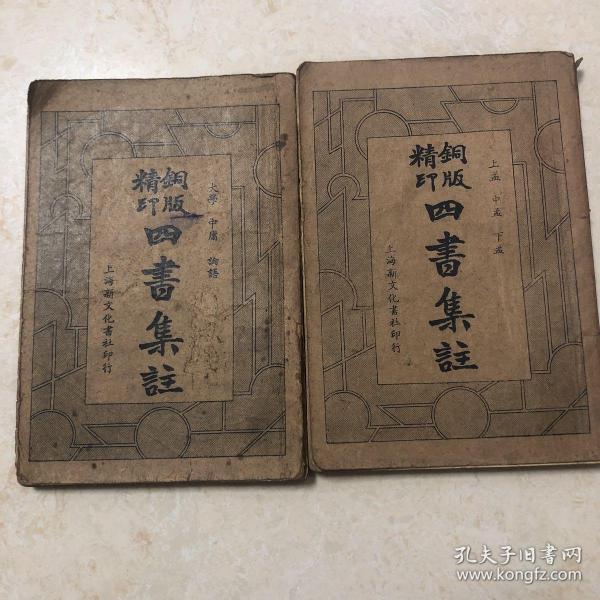 大學 中庸 論語
銅版
精印
四書集註
上海新文化書社印行
上孟 中孟 下孟
銅版
精印
四書集註
上海新文化書社印行
孔夫子旧书网
www.kongfz.com